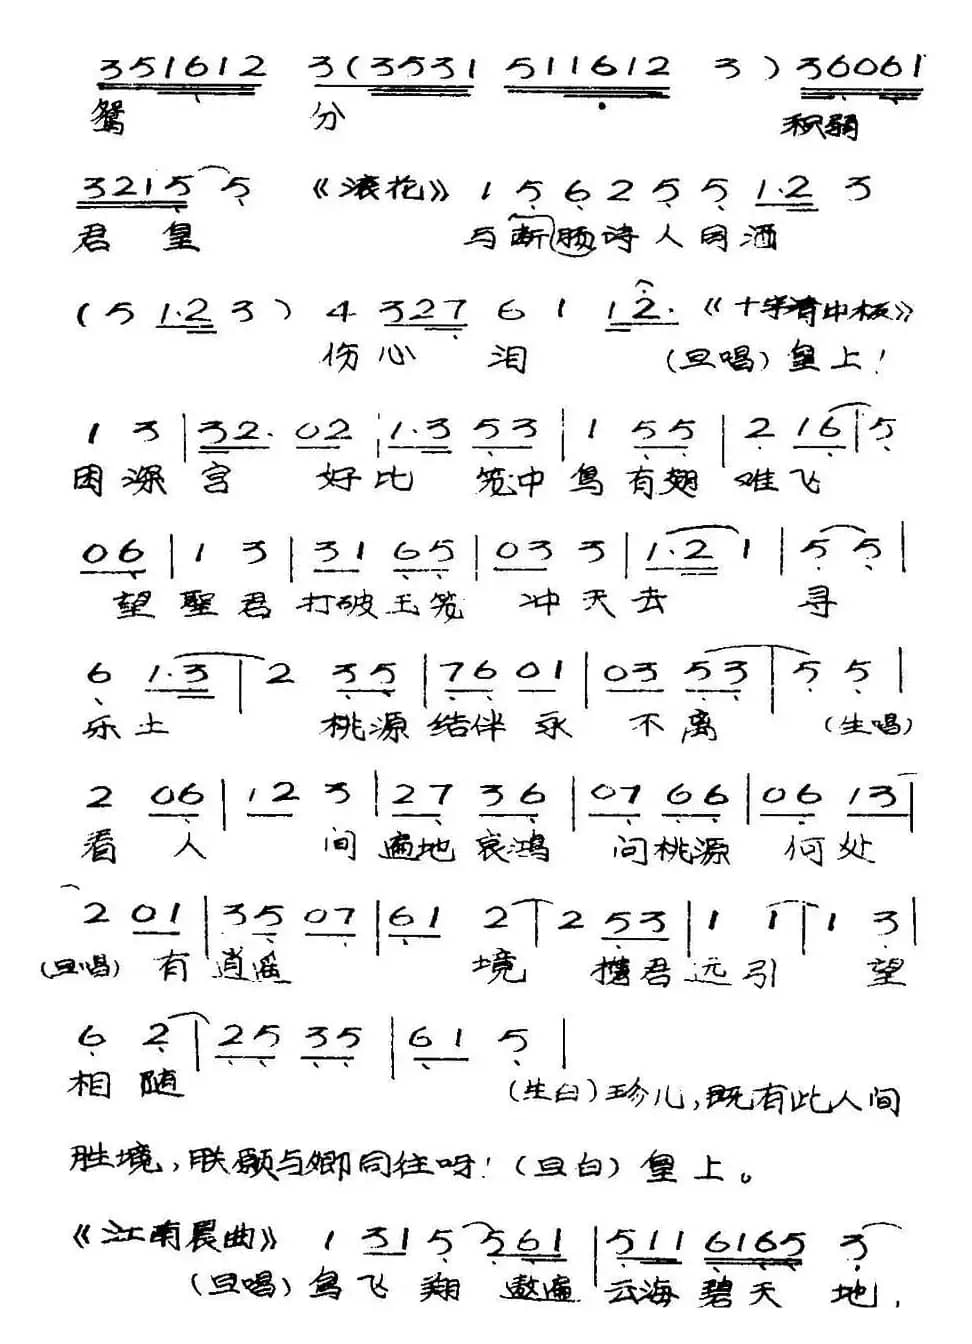 351612 3(3531 511612 3)36061
鸳 分 积弱
3215 5 《滚花》 1 5 6 2 5 5 1·2 3
君皇 与断肠诗人同洒
(5 1·2 3) 4 327 6 1 12· 《十字清中板》
伤心 泪 (旦唱)皇上!
1 3 | 32· 02 | 1·3 53 | 1 55 | 2 16 | 5
困深宫 好比 笼中鸟有翅难飞
06 | 1 3 | 31 65 | 03 3 | 1·2 1 | 5 5 |
望圣君打破玉笼 冲天去 寻
6 1·3 | 2 35 | 76 01 | 03 53 | 5 5 |
乐土 桃源结伴永 不离 (生唱)
2 06 | 12 3 | 27 36 | 07 66 | 06 13 |
看人 间遍地哀鸿 问桃源 何处
2 01 | 35 07 | 61 2 | 2 53 | 1 1 | 1 3 |
(旦唱) 有逍遥 境 携君远引 望
6 2 | 25 35 | 61 5 |
相随 (生白)珍儿,既有此人间
胜境,朕愿与卿同往呀!(旦白)皇上。
《江南晨曲》 1 31 5 561 | 511 6165 3
(旦唱)鸟飞翔 遨遍 云海碧天地,